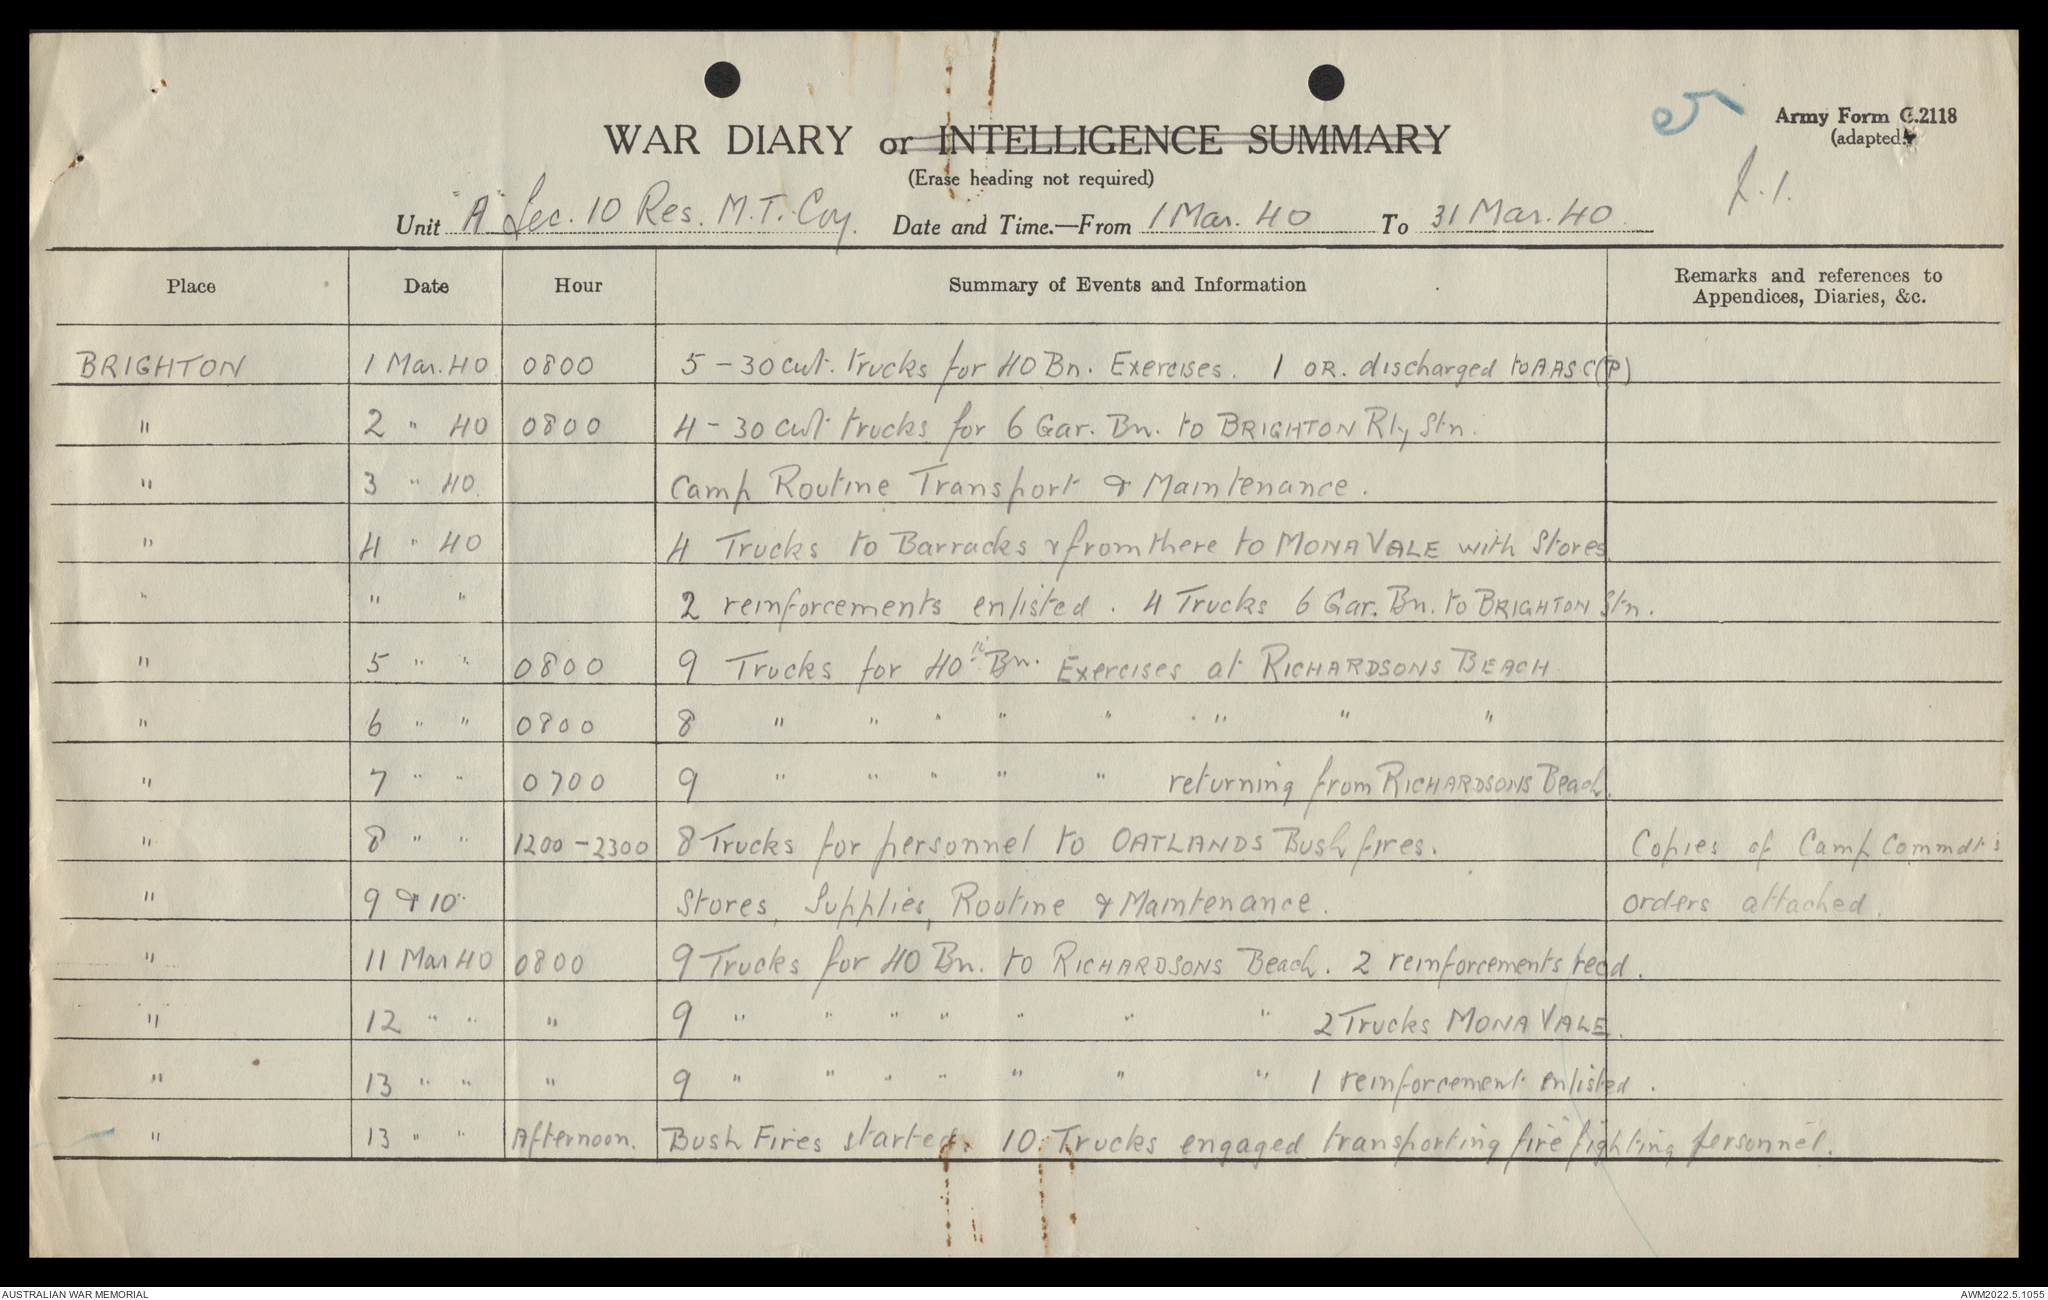 WAR DIARY or INTELLIGENCE SUMMARY
(Erase heading not required)
Army Form C.2118
(adapted)
Unit "A" Sec. 10 Res. M.T. Coy. Date and Time.—From 1 Mar. 40 To 31 Mar. 40.
Place Date Hour Summary of Events and Information Remarks and references to Appendices, Diaries, &c.
BRIGHTON 1 Mar. 40 0800 5 - 30 cwt. trucks for 40 Bn. Exercises. 1 OR. discharged to AASC(P)
" 2 " 40 0800 4 - 30 cwt trucks for 6 Gar. Bn. to BRIGHTON Rly Stn.
" 3 " 40. Camp Routine Transport & Maintenance.
" 4 " 40 4 Trucks to Barracks & from there to MONA VALE with Stores
" " " 2 reinforcements enlisted. 4 Trucks 6 Gar. Bn. to BRIGHTON Stn.
" 5 " " 0800 9 Trucks for 40 Bn. Exercises at RICHARDSONS BEACH
" 6 " " 0800 8 " " " " " " " "
" 7 " " 0700 9 " " " " " returning from RICHARDSONS Beach.
" 8 " " 1200-2300 8 Trucks for personnel to OATLANDS Bush fires. Copies of Camp Commdt's
" 9 & 10 Stores, Supplies, Routine & Maintenance. orders attached.
" 11 Mar 40 0800 9 Trucks for 40 Bn. to RICHARDSONS Beach. 2 reinforcements recd.
" 12 " " " 9 " " " " " " " 2 Trucks MONA VALE.
" 13 " " " 9 " " " " " " " 1 reinforcement enlisted.
" 13 " " Afternoon. Bush Fires started. 10 Trucks engaged transporting fire fighting personnel.
AUSTRALIAN WAR MEMORIAL
AWM2022.5.1055